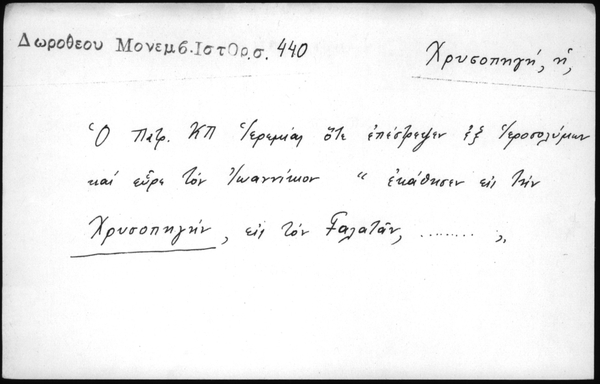 Δωροθεου Μονεμβ. Ιστορ. σ. 440
Χρυσοπηγή, ἡ,
Ὁ Πατρ. ΚΠ Ἱερεμίας ὅτε ἐπέστρεψεν ἐξ Ἱεροσολύμων
καί εὗρε τόν Ἰωαννίκιον “ ἐκάθησεν εἰς τήν
Χρυσοπηγήν, εἰς τόν Γαλατᾶν, ........ „